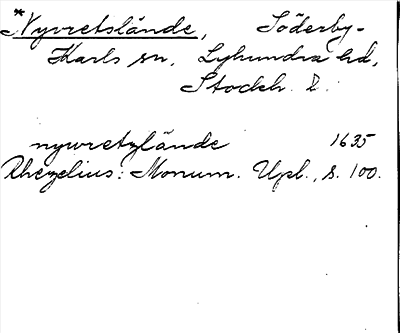 *Nyvretslände, Söderby-
Karls sn, Lyhundra hd,
Stockh. l.
nywretzlände 1635
Rhezelius: Monum. Upl., s. 100.